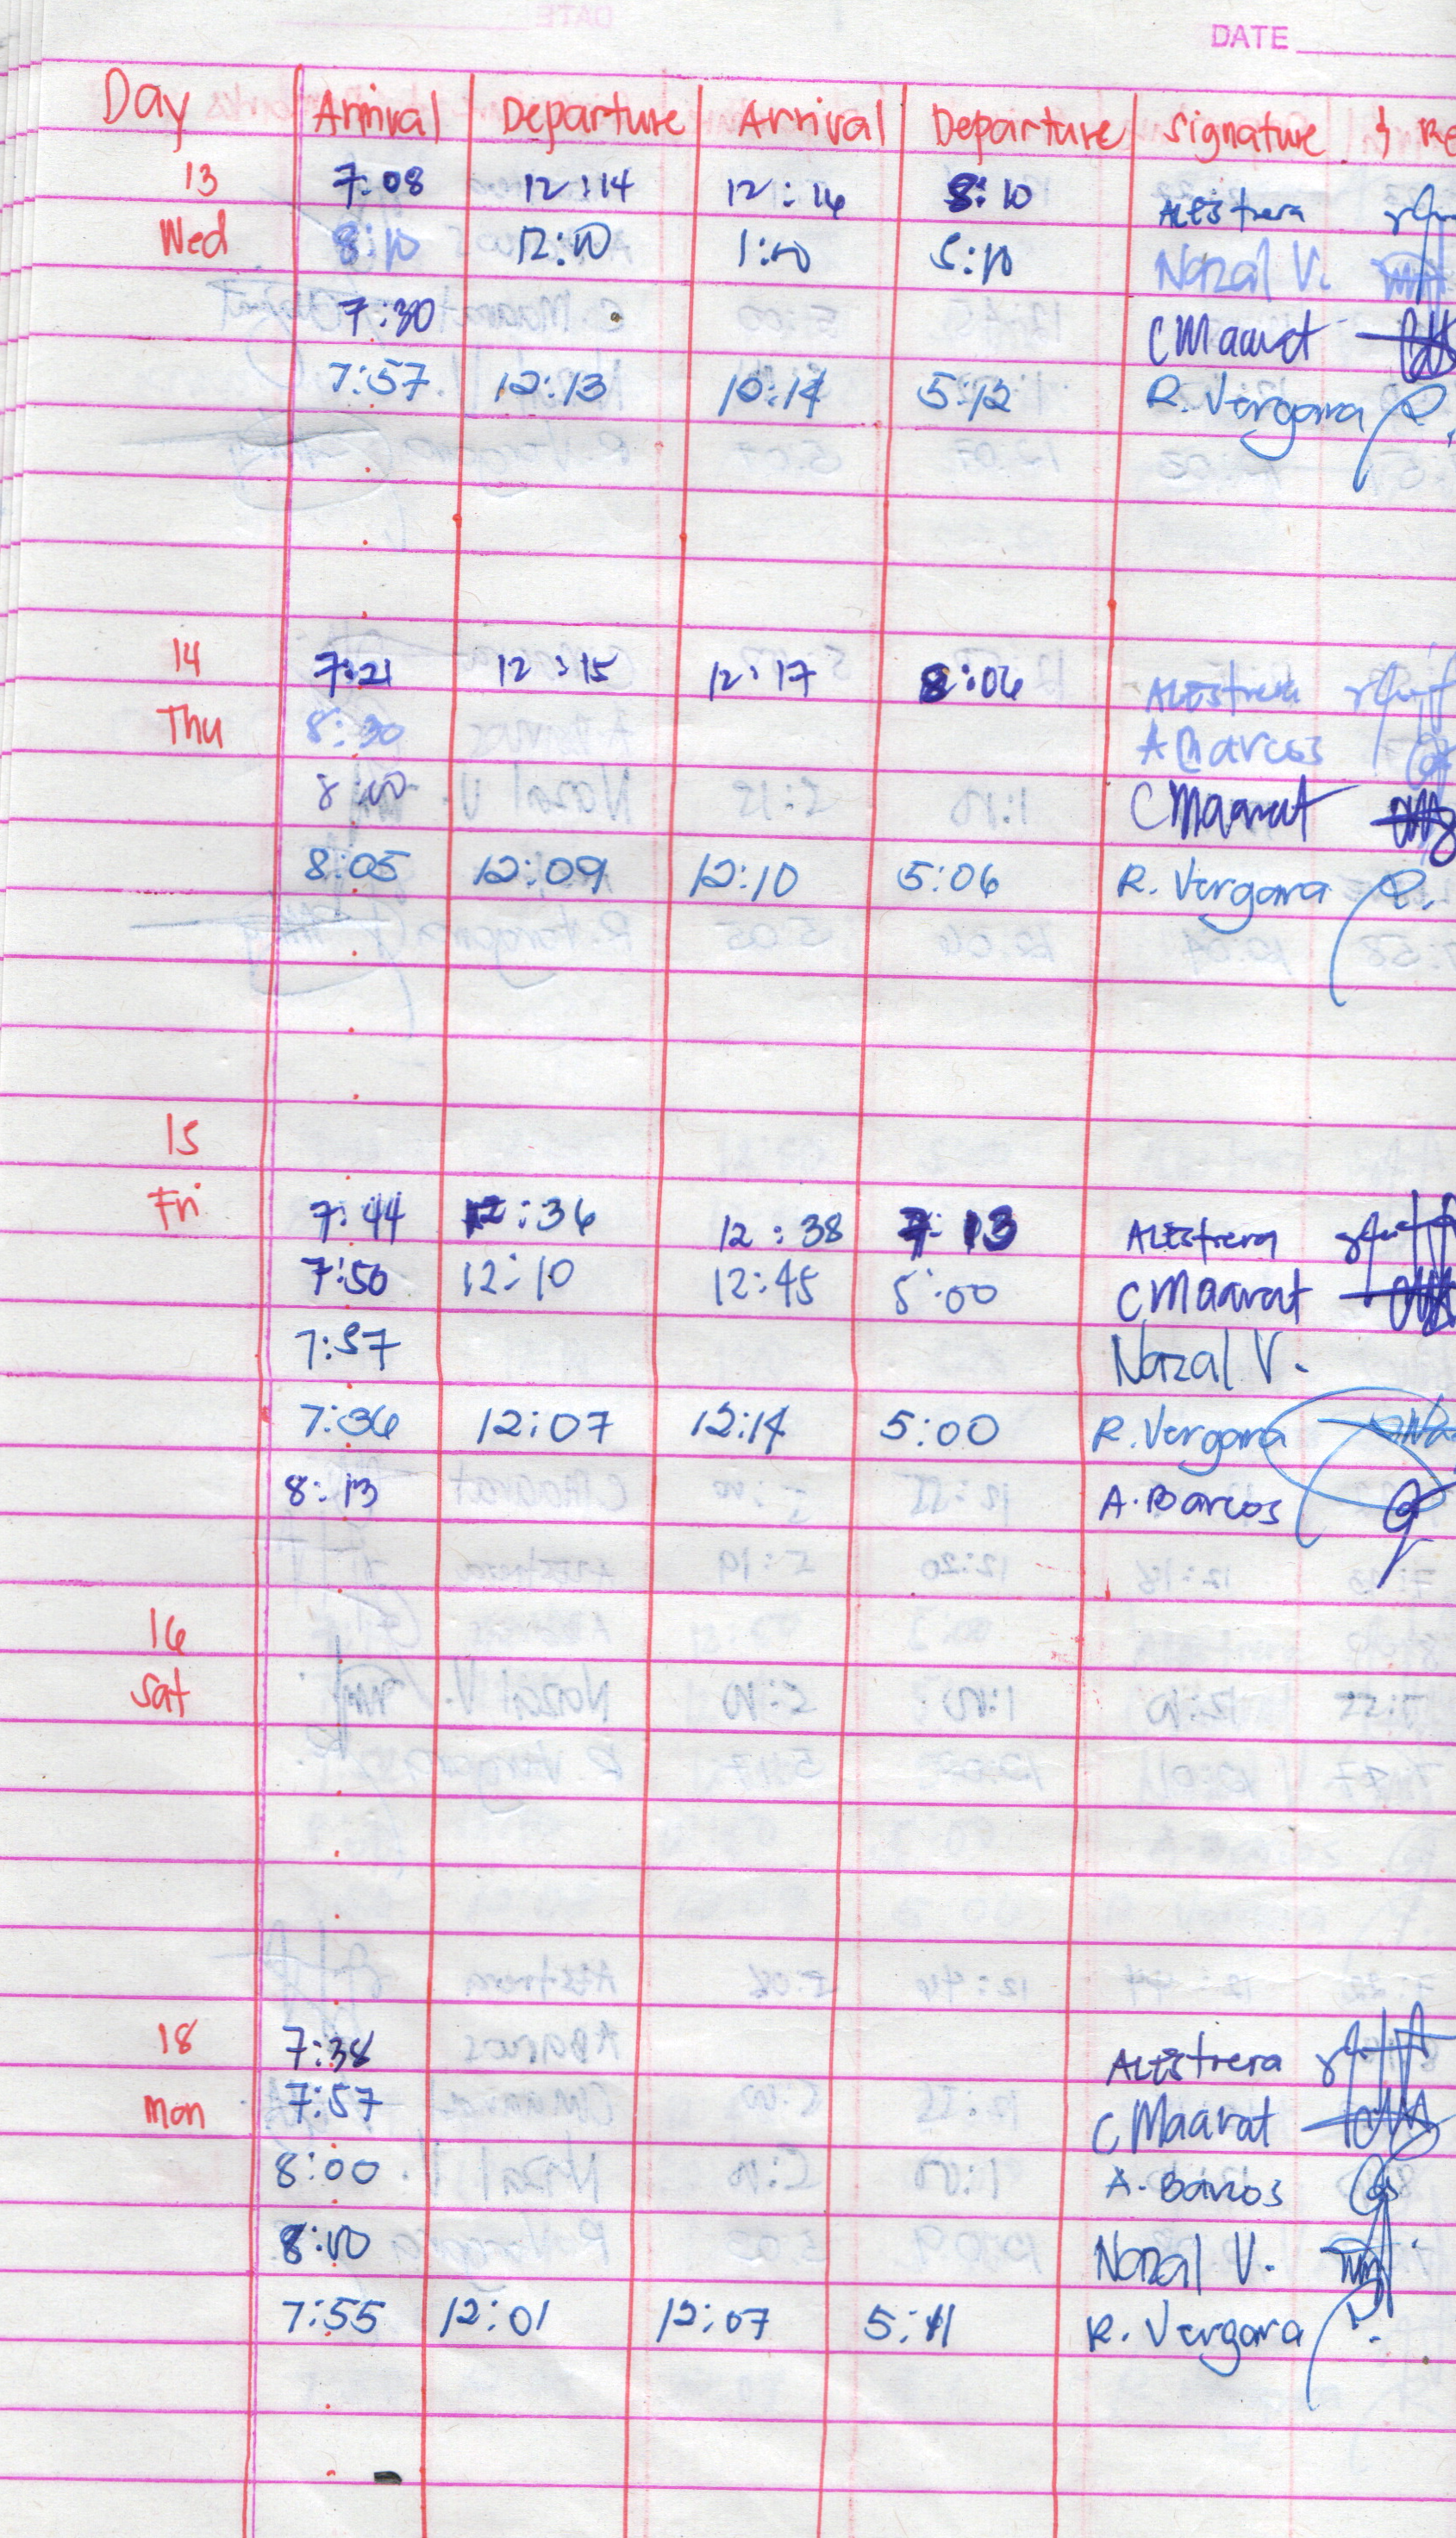 DATE
Day Arrival Departure Arrival Departure Signature
13 7:08 12:14 12:16 8:10 Alestrera
Wed 8:10 12:10 1:10 5:10 Nazal V.
7:30 C Maarat
7:57 12:13 12:14 5:12 R. Vergara
14 7:21 12:15 12:17 8:06 Alestrera
Thu 8:30 A Barcos
8:00 C Maarat
8:05 12:09 12:10 5:06 R. Vergara
15
Fri 7:44 12:36 12:38 7:13 Alestrera
7:50 12:10 12:45 5:00 C Maarat
7:57 Nazal V.
7:36 12:07 12:14 5:00 R. Vergara
8:13 A. Barcos
16
Sat
18 7:38 Alestrera
Mon 7:57 C Maarat
8:00 A. Barcos
8:10 Nazal V.
7:55 12:01 12:07 5:11 R. Vergara